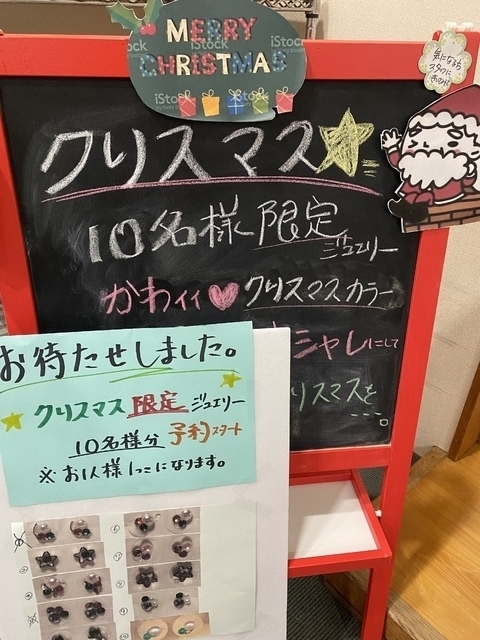 MERRY
CHRISTMAS
iStock
iStock
iStock
iStock
iStock
気になるち
スタッフに
クリスマス
10名様限定
ジュエリー
かわィィ♥クリスマスカラー
シャレにして
リスマスを
---。
お待たせしました。
クリスマス限定ジュエリー
10名様分 予約スタート
※お1人様1つになります。